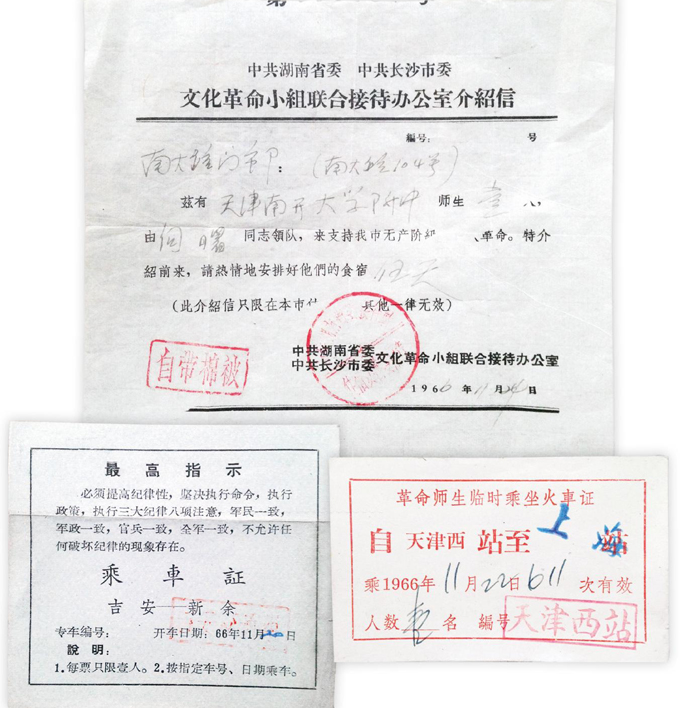 中共湖南省委 中共长沙市委
文化革命小组联合接待办公室介紹信
編号: 号
: (南大路104号)
茲有 天津南开大学附中 师生 壹 人,
由 何曙 同志領队,来支持我市无产阶級 革命。特介
紹前来,請热情地安排好他們的食宿 伍天
(此介紹信只限在本市 其他一律无效)
中共湖南省委
中共长沙市委 文化革命小組联合接待办公室
1966 年 11 月 24 日
自带棉被
最高指示
必须提高纪律性,坚决执行命令,执行
政策,执行三大纪律八项注意,军民一致,
军政一致,官兵一致,全军一致,不允许任
何破坏纪律的现象存在。
乘車証
吉安——新余
专车编号: 开车日期:66年11月 日
說明:
1.每票只限壹人。2.按指定车号、日期乘车。
革命师生临时乘坐火車证
自 天津西 站至 上海 站
乘1966年 11 月 22 日 611 次有效
人数 壱 名 編号
天津西站